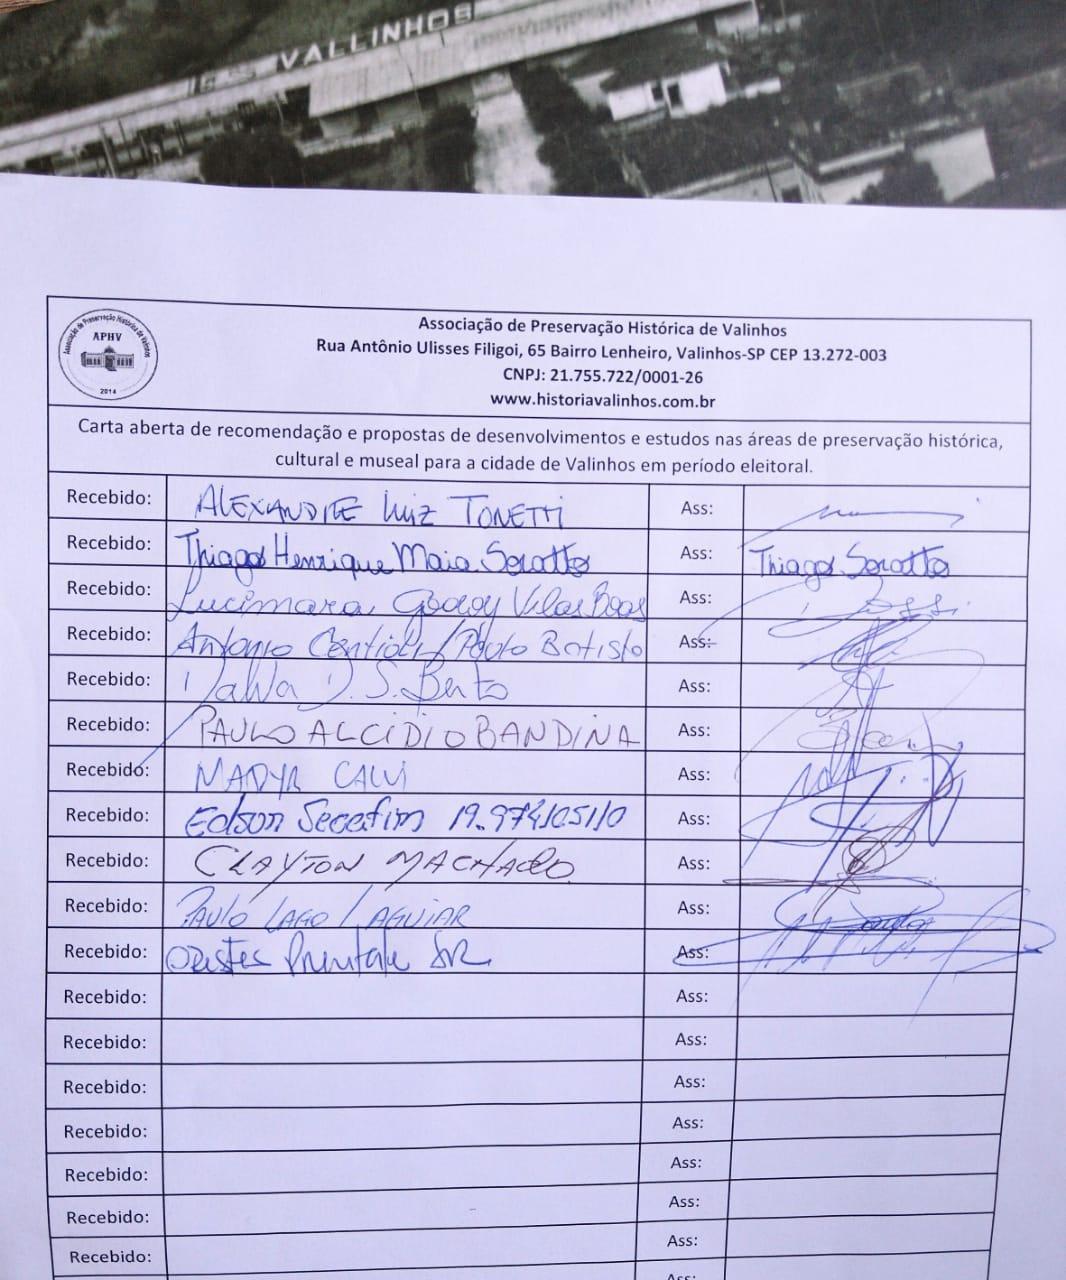 VALLINHOS
Associação de Preservação Histórica de Valinhos
APHV
2014
Associação de Preservação Histórica de Valinhos
Rua Antônio Ulisses Filigoi, 65 Bairro Lenheiro, Valinhos-SP CEP 13.272-003
CNPJ: 21.755.722/0001-26
www.historiavalinhos.com.br
Carta aberta de recomendação e propostas de desenvolvimentos e estudos nas áreas de preservação histórica,
cultural e museal para a cidade de Valinhos em período eleitoral.
Recebido: ALEXANDRE LUIZ TONETTI Ass:
Recebido: Thiago Henrique Maia Ass: Thiago
Recebido: Lucimara Godoy Vilas Boas Ass:
Recebido: Antonio / Paulo Batista Ass:
Recebido: Dalva D. S. Berto Ass:
Recebido: PAULO ALCIDIO BANDINA Ass:
Recebido: MADYR CALVI Ass:
Recebido: Edson Secafim Ass:
Recebido: CLAYTON MACHADO Ass:
Recebido: PAULO LAGO / AGUIAR Ass:
Recebido: ORESTES JR. Ass:
Recebido: Ass:
Recebido: Ass:
Recebido: Ass:
Recebido: Ass:
Recebido: Ass:
Recebido: Ass:
Recebido: Ass:
Ass: